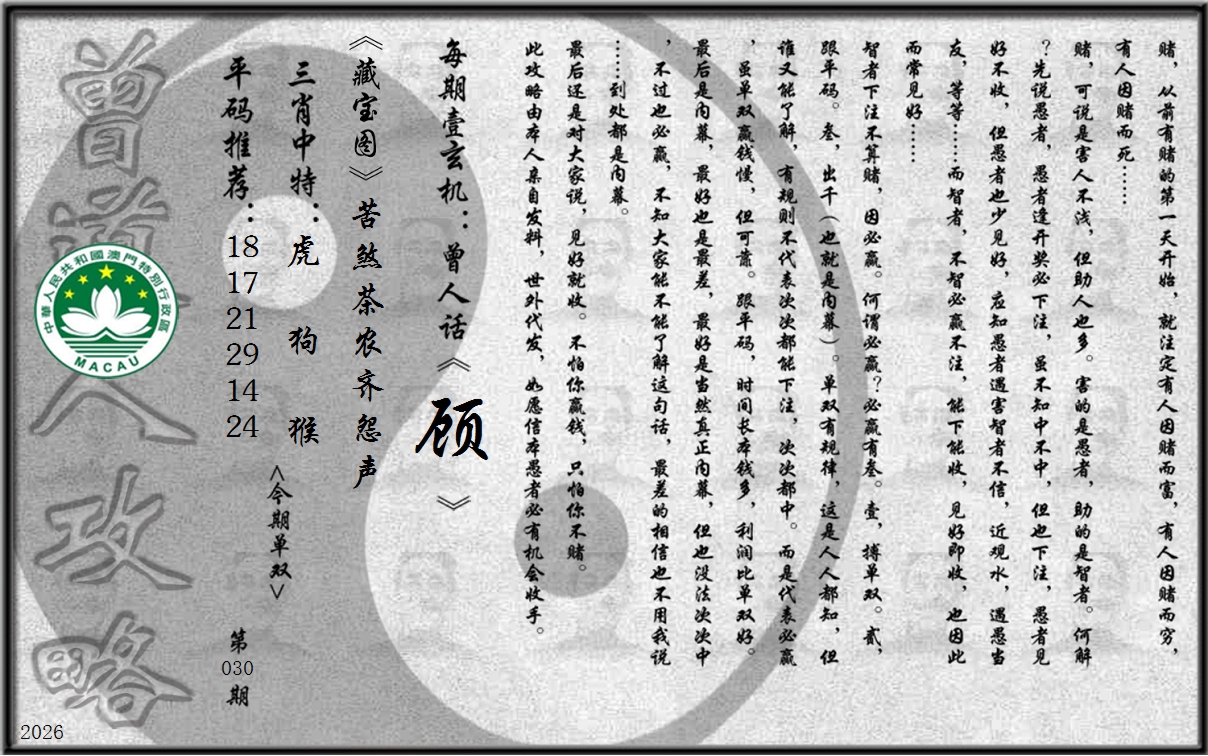 赌，从前有赌的第一天开始，就注定有人因赌而富，有人因赌而穷，
有人因赌而死……
赌，可说是害人不浅，但助人也多。害的是愚者，助的是智者。何解
？先说愚者，愚者逢开奖必下注，虽不知中不中，但也下注，愚者见
好不收，但愚者也少见好，应知愚者遇害智者不信，近观水，遇愚当
友，等等……而智者，不智必赢不注，能下能收，见好即收，也因此
而常见好……
智者下注不算赌，因必赢。何谓必赢？必赢有叁。壹，搏单双。贰，
跟平码。叁，出千（也就是内幕）。单双有规律，这是人人都知，但
谁又能了解，有规则不代表次次都能下注，次次都中。而是代表必赢
，虽单双赢钱慢，但可靠。跟平码，时间长本钱多，利润比单双好。
最后是内幕，最好也是最差，最好是当然真正内幕，但也没法次次中
，不过也必赢，不知大家能不能了解这句话，最差的相信也不用我说
……到处都是内幕。
最后还是对大家说，见好就收。不怕你赢钱，只怕你不赌。
此攻略由本人亲自发料，世外代发，如愿信本愚者必有机会收手。
每期壹玄机：曾人话《顾》
《藏宝图》苦煞茶农齐怨声
三肖中特：虎 狗 猴
<今期单双>
平码推荐：18 17 21 29 14 24
第030期
曾道人攻略
中華人民共和國澳門特別行政區
MACAU
2026